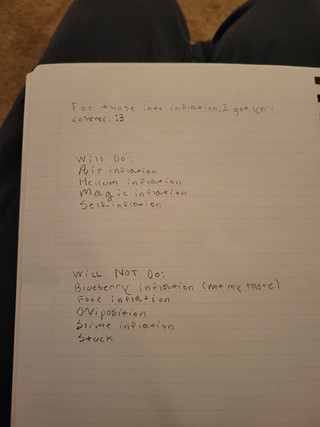 For those into inflation, I got y'all
covered. :3
Will Do:
Air inflation
Helium inflation
Magic inflation
Self-inflation
Will NOT Do:
Blueberry inflation (not my taste)
Food inflation
Oviposition
Slime inflation
Stuck